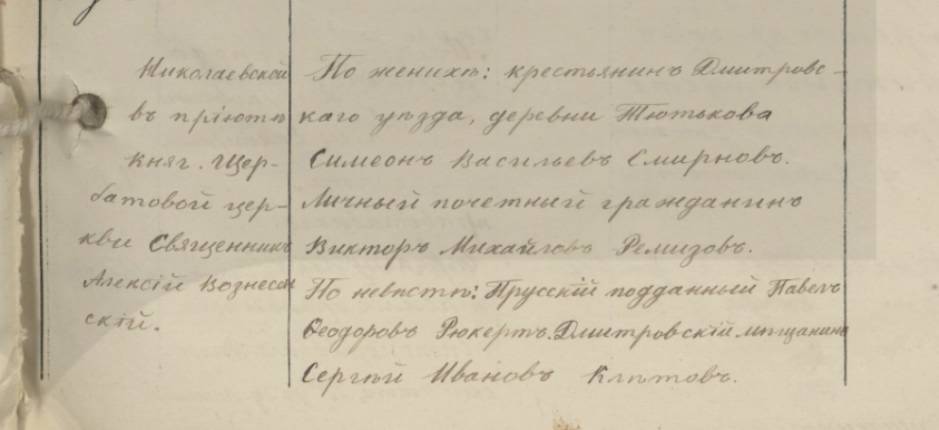 Николаевской
въ пріютѣ
княг. Щер-
батовой цер-
кви Священникъ
Алексій Вознесен
скій.
По женихѣ: крестьянинъ Дмитровс-
каго уѣзда, деревни Тютькова
Симеонъ Васильевъ Смирновъ.
Личный почетный гражданинъ
Викторъ Михайловъ Ремизовъ.
По невѣстѣ: Прусскій подданный Павелъ
Ѳеодоровъ Рюкертъ. Дмитровскій мѣщанинъ
Сергѣй Ивановъ